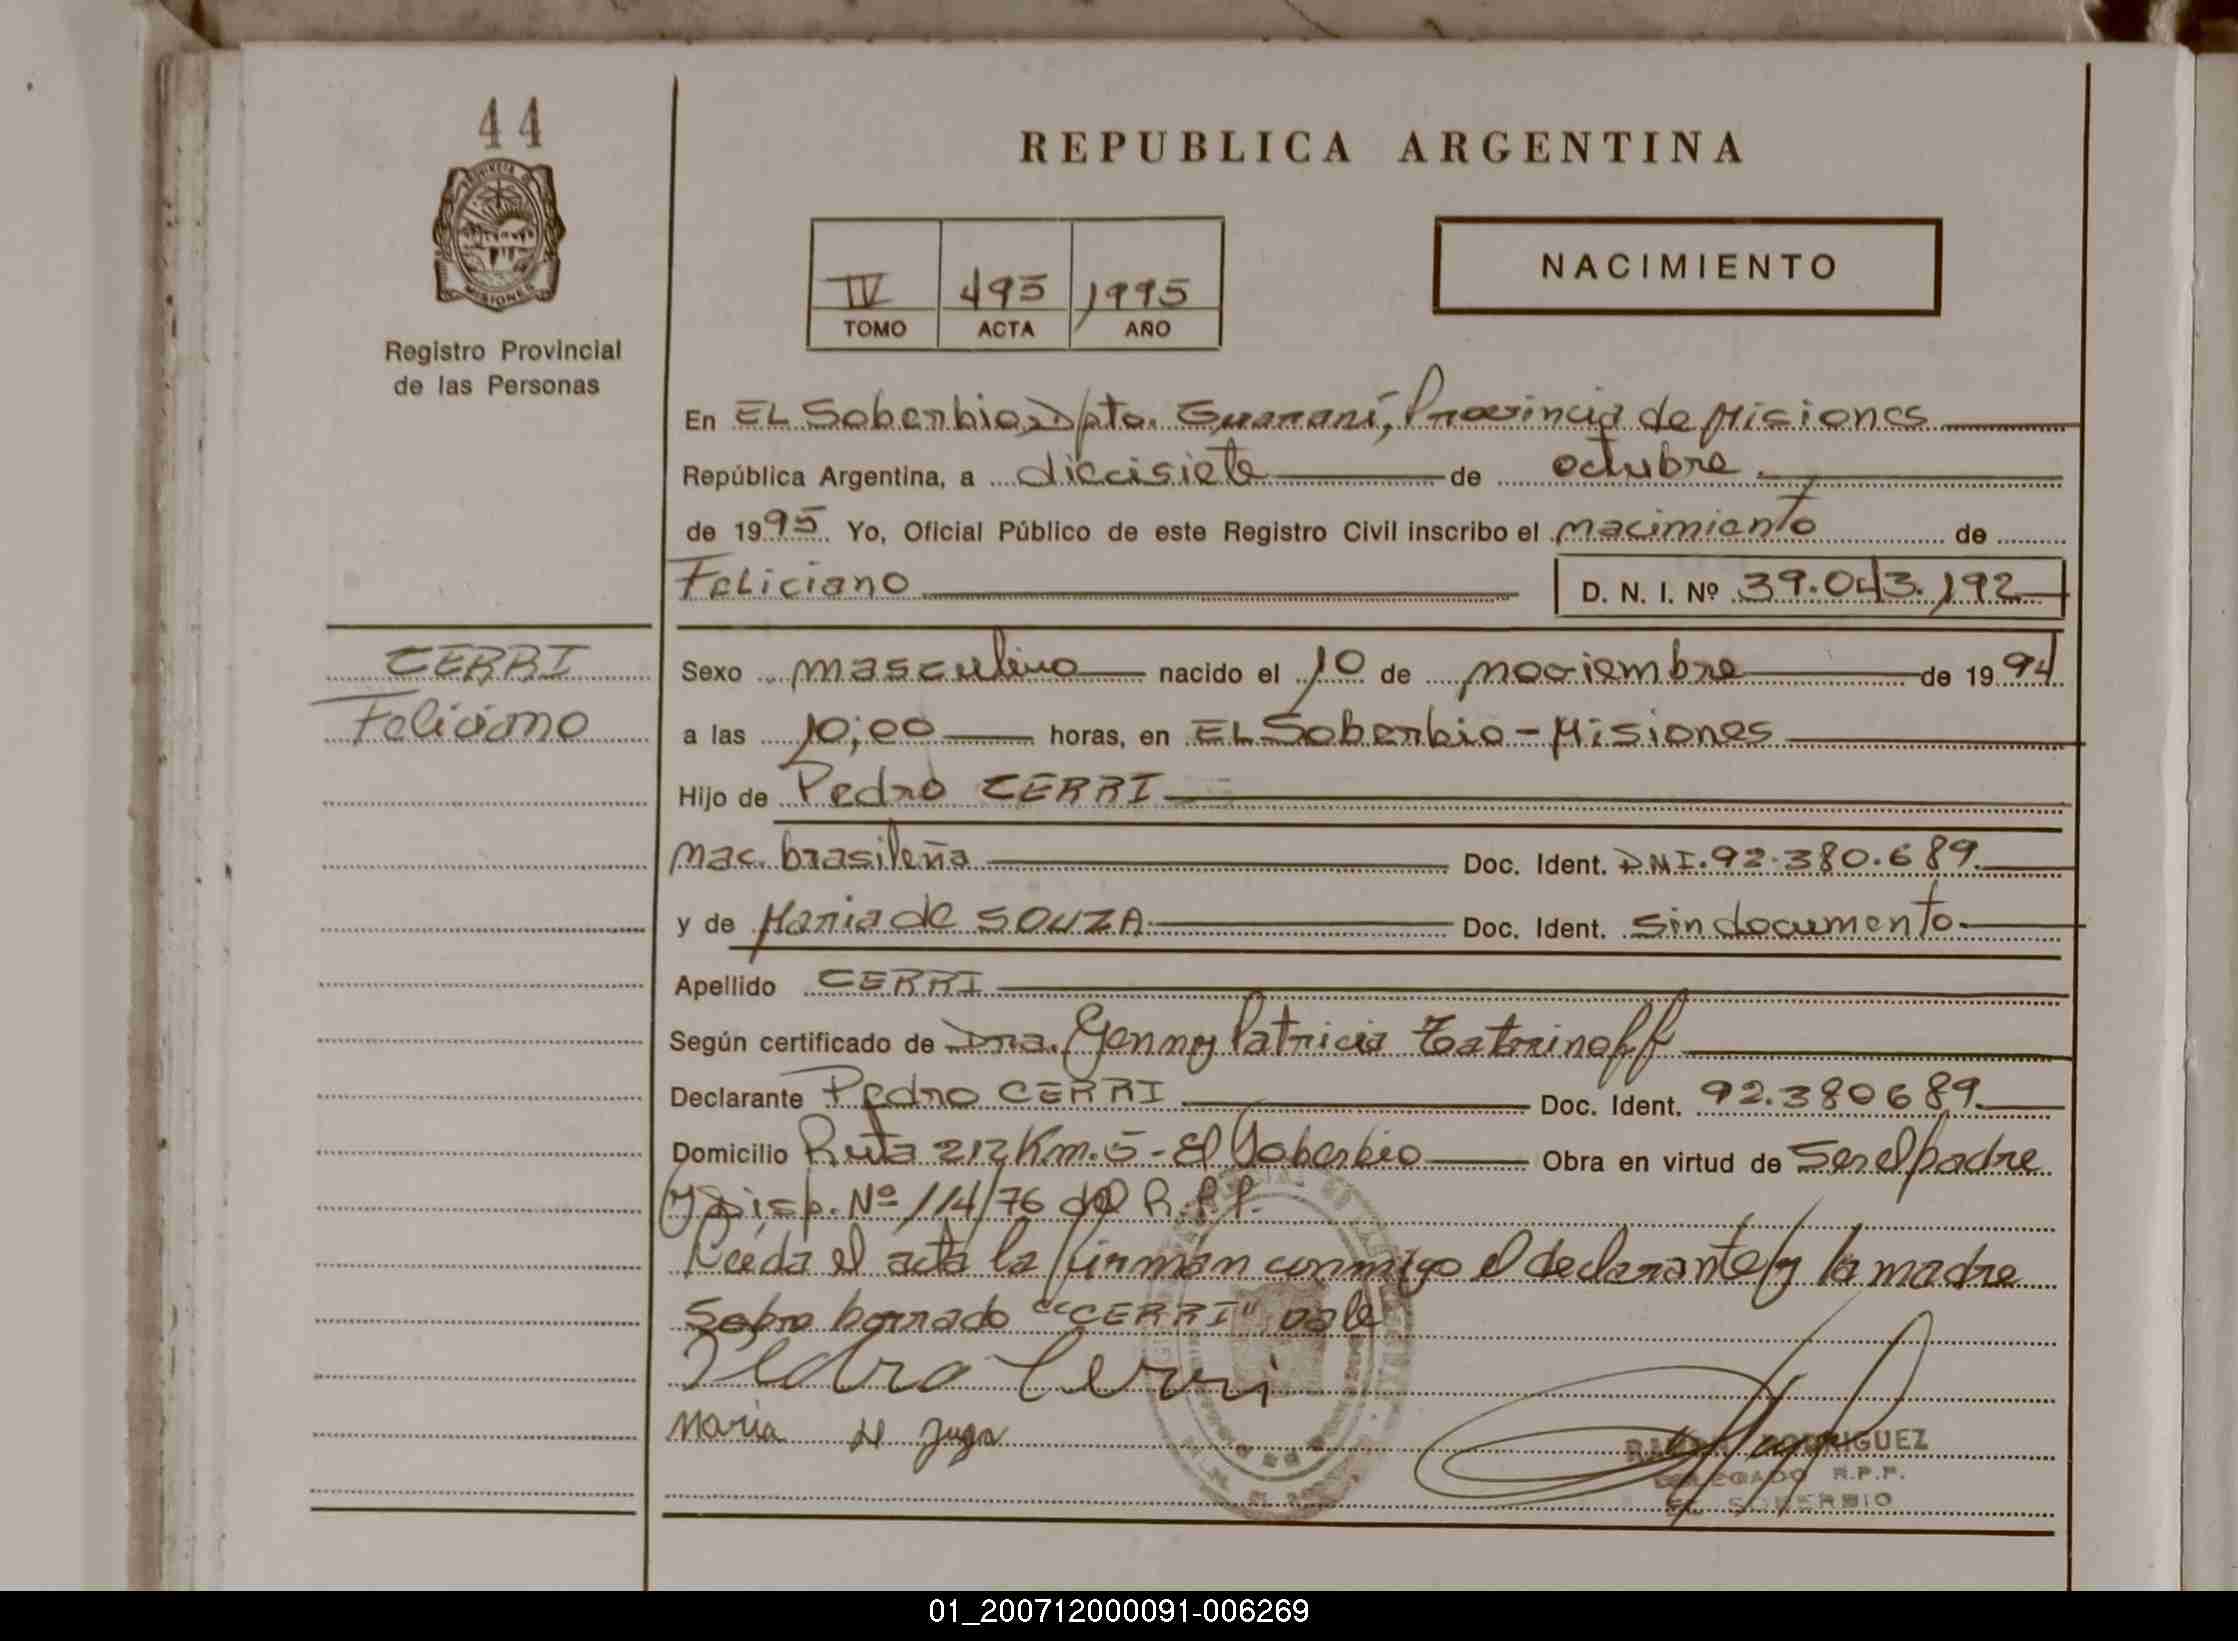 44
REPUBLICA ARGENTINA
PROVINCIA DE
MISIONES
Registro Provincial
de las Personas
IV 495 1995
TOMO ACTA AÑO
NACIMIENTO
En EL Soberbio, Dpto. Guaraní, Provincia de Misiones
República Argentina, a diecisiete de octubre
de 1995. Yo, Oficial Público de este Registro Civil inscribo el nacimiento de
Feliciano D. N. I. Nº 39.043.192
CERRI
Feliciano
Sexo masculino nacido el 10 de noviembre de 1994
a las 10;00 horas, en EL Soberbio - Misiones
Hijo de Pedro CERRI
nac. brasileña Doc. Ident. DNI. 92.380.689.
y de Maria de SOUZA Doc. Ident. sin documento
Apellido CERRI
Según certificado de Dra. Genny Patricia
Declarante Pedro CERRI Doc. Ident. 92.380689
Domicilio Ruta 212 Km. 5 - El Soberbio Obra en virtud de Ser el padre
y Disp. Nº 114/76 del R.P.P.
Leída el acta la firman conmigo el declarante y la madre
Sobre borrado "CERRI" vale
Pedro Cerri
Maria de
RODRIGUEZ
DELEGADO R.P.P.
EL SOBERBIO
01_200712000091-006269